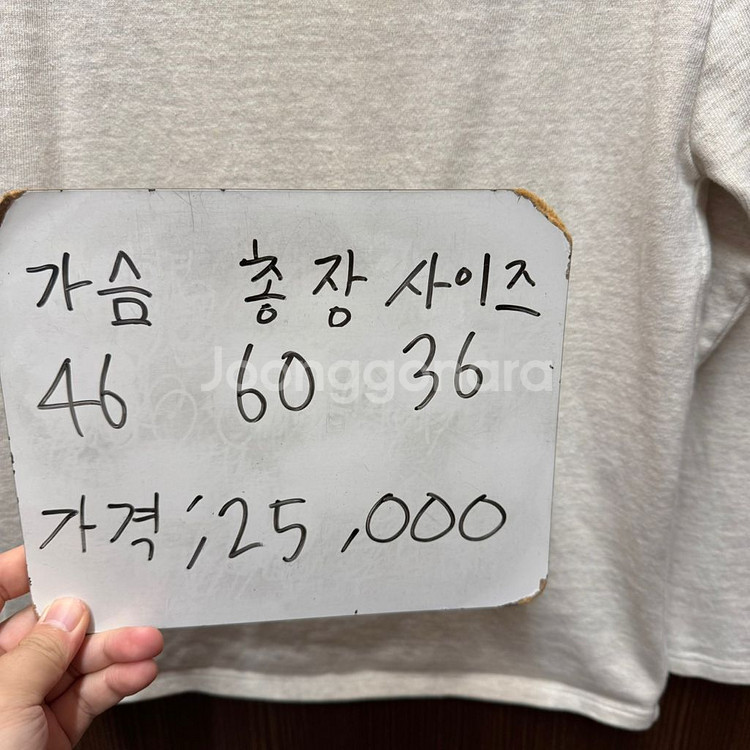 가슴 총장 사이즈
46 60 36
Joonggonara
가격;25,000